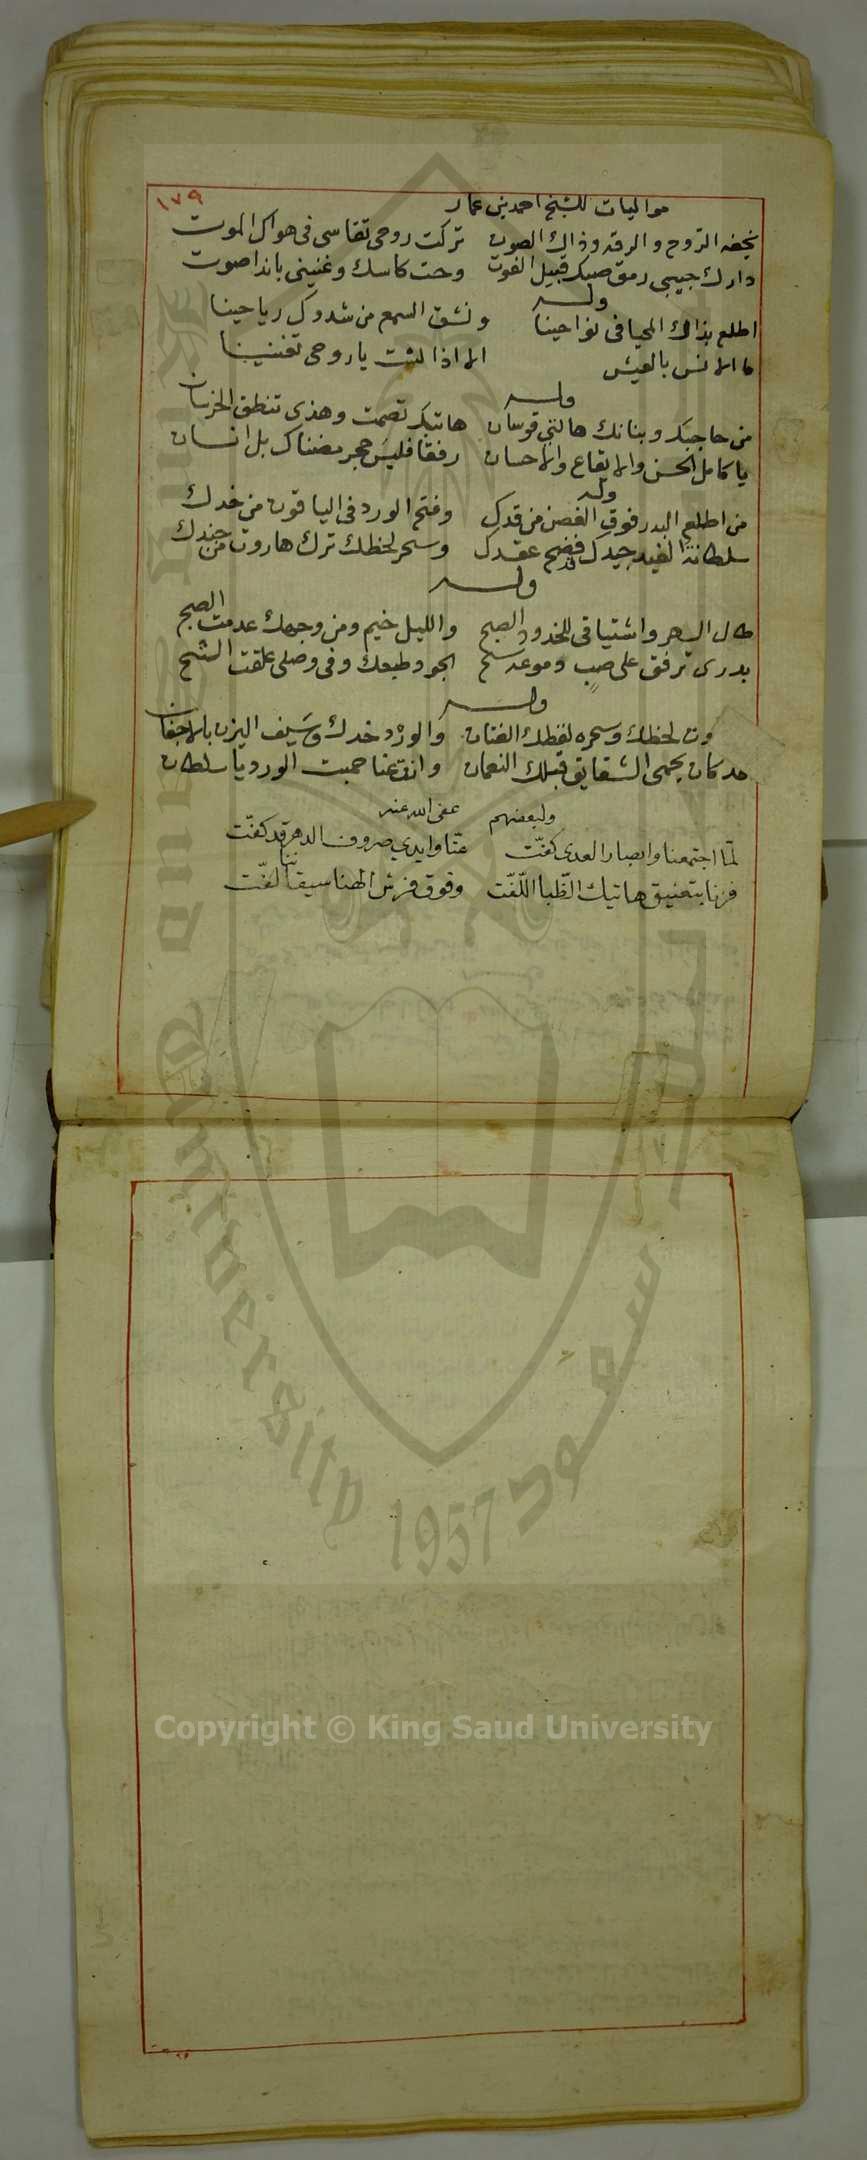 ١٧٩
مواليات للشيخ احمد بن عمار
بخفه الروح والرقه وذاك الصون تركت روحى تقاسى فى هواك الموت
دارك حبيبى رمق صبك قبيل الفوت وحث كاسك وغنينى باندا صوت
وله
اطلع بذاك المحيا فى نواحينا ونشق السمع من شدوك رياحينا
ما الانس بالعيش الا اذا لنت ياروحى تغنينا
وله
من حاجبك وبنانك هالتى قوسان هاتيك تصمت وهذى تنطق الخرسان
يا كامل الحسن والايقاع والاحسان رفقا فليس حجر مضناك بل انسان
وله
من اطلع البدر فوق الغصن من قدك وفتح الورد فى الياقوت من خدك
سلطانة الغيد جيدك فضح عقدك وسحر لحظك ترك هاروت من جندك
وله
طال السهر واشتياقى للخدود الصبح والليل خيم ومن وجهك عدمت الصبح
بدرى ترفق على صب وموعد سح الجود طبعك وفى وصلى علقت الشح
وله
لحظك وسحره لفظك الفتان والورد خدك وسيف اليزن بالاجفان
كان يحمى الشقايق قبلك النعمان وانت عنا حميت الورد يا سلطان
ولبعضهم عفى الله عنه
لمّا اجتمعنا وابصار العدى كفّت عنّا وايدي صروف الدهر قد كفّت
فزنا بتعنيق هاتيك الظّبا اللّفّت وفوق فرش الهنا سيقاننا لفّت
Copyright © King Saud University
King Saud University
1957
سعود